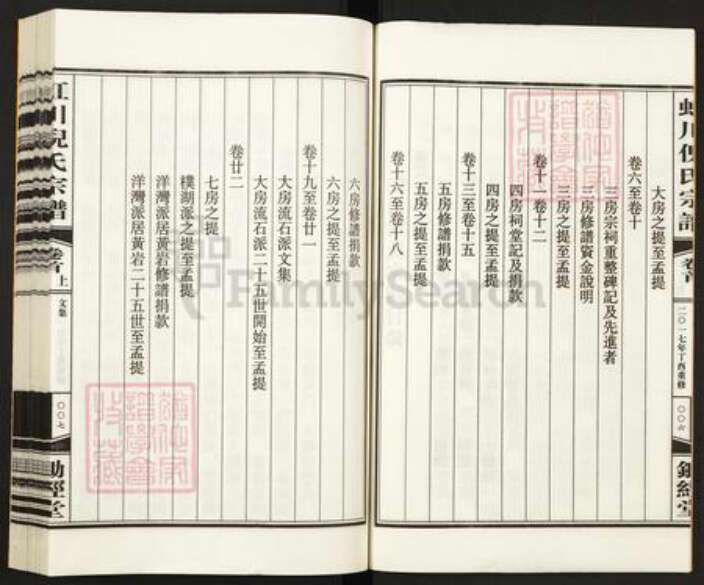 大房之提至孟提
卷六至卷十
三房宗祠重整碑記及先進者
三房修譜資金說明
三房之提至孟提
卷十一卷十二
四房祠堂記及捐款
四房之提至孟提
卷十三至卷十五
五房修譜捐款
五房之提至孟提
卷十六至卷十八
二〇一七年丁酉重修
〇〇六
六房修譜捐款
六房之提至孟提
卷十九至卷廿一
大房流石派文集
大房流石派二十五世開始至孟提
卷廿二
七房之提
樸湖派之提至孟提
洋灣派居黃岩修譜捐款
洋灣派居黃岩二十五世至孟提
川倪氏宗譜
卷首上
文集
〇〇七
經堂
FamilySearch